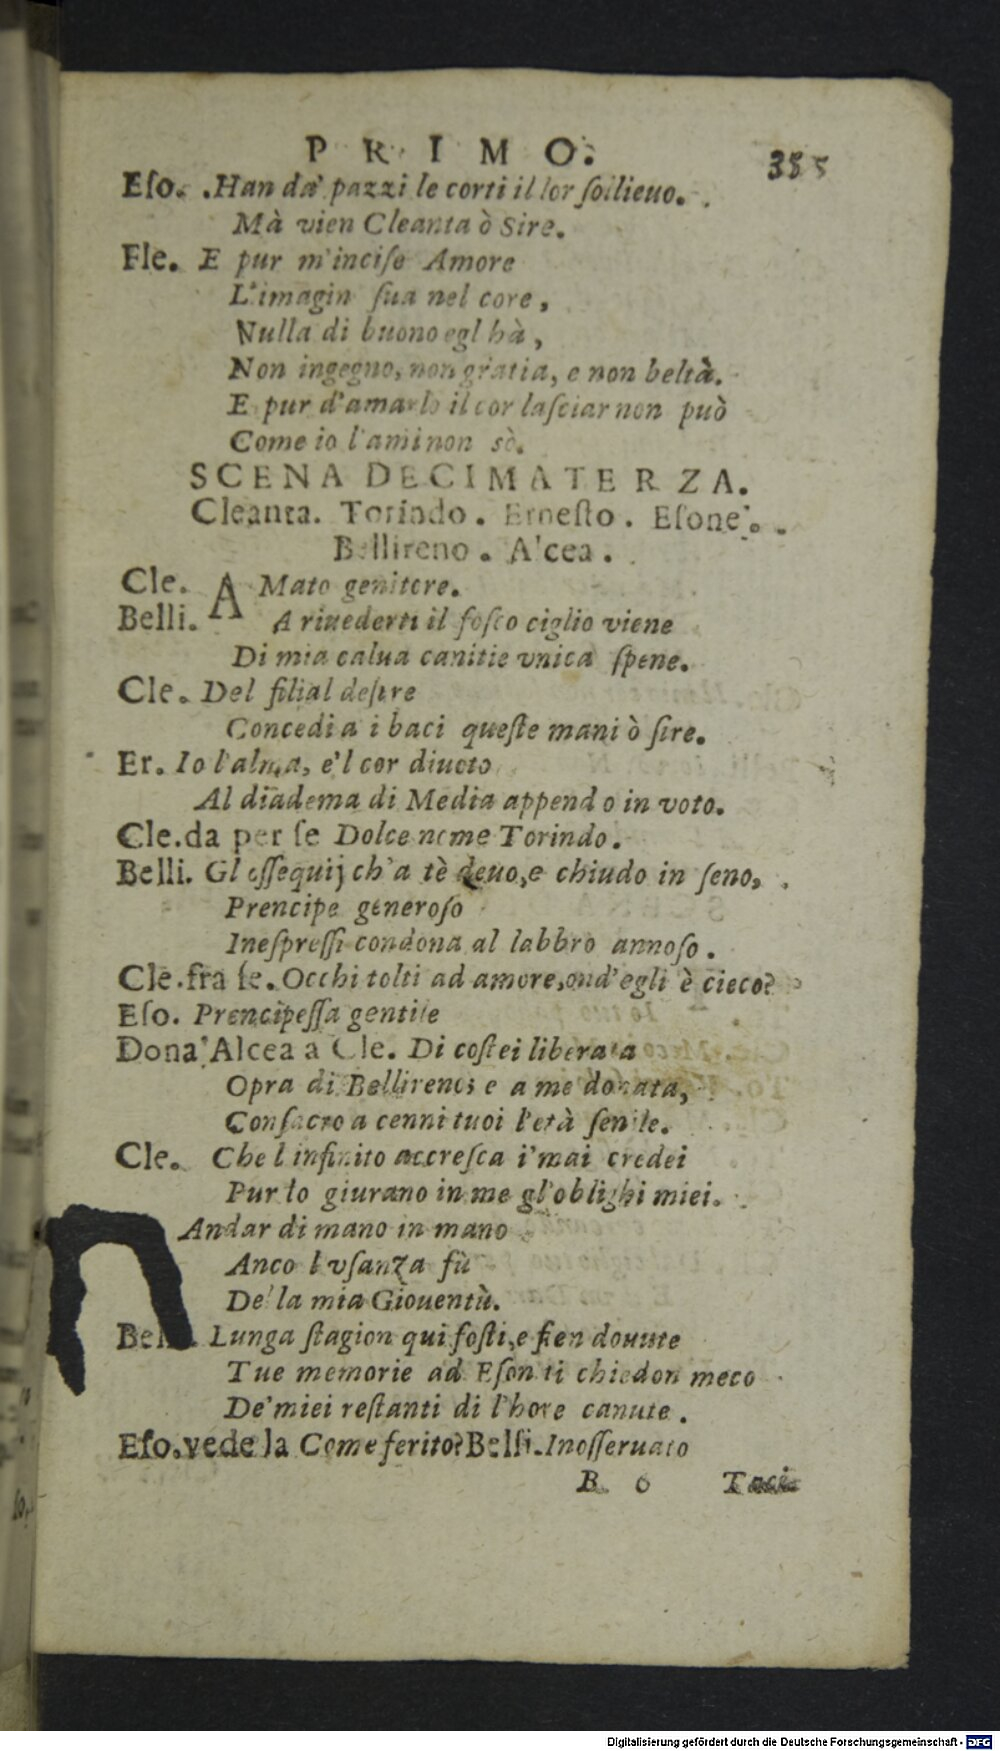 PRIMO. 385
Eſo. .Han da' pazzi le corti il lor ſollieuo.
Mà vien Cleanta ò Sire.
Fle. E pur m'inciſe Amore
L'imagin ſua nel core,
Nulla di buono egl hà,
Non ingegno, non gratia, e non beltà.
E pur d'amarlo il cor laſciar non può
Come io l'ami non sò.
SCENA DECIMATERZA.
Cleanta. Torindo. Erneſto. Eſone.
Bellireno. Alcea.
Cle. AMato genitore.
Belli. A riuederti il foſco ciglio viene
Di mia calua canitie vnica ſpene.
Cle. Del filial deſire
Concedi a i baci queſte mani ò ſire.
Er. Io l'alma, e'l cor diuoto
Al diadema di Media appendo in voto.
Cle. da per ſe Dolce nome Torindo.
Belli. Gl eſſequij ch'a tè deuo, e chiudo in ſeno,
Prencipe generoſo
Ineſpreſſi condona al labbro annoſo.
Cle. fra ſe. Occhi tolti ad amore, ond'egli è cieco?
Eſo. Prencipeſſa gentile
Dona Alcea a Cle. Di coſtei liberata
Opra di Bellireno; e a me donata,
Conſacro a cenni tuoi l'età ſenile.
Cle. Che l infinito accreſca i'mai credei
Pur lo giurano in me gl'oblighi miei.
Andar di mano in mano
Anco l vſanza fù
De la mia Giouentù.
Belli. Lunga ſtagion qui foſti, e ſien douute
Tue memorie ad Eſon ti chiedon meco
De' miei reſtanti di l'hore canute.
Eſo. vede la Come ferito? Belli. Inoſſeruato
B 6 Taci
Digitalisierung gefördert durch die Deutsche Forschungsgemeinschaft - DFG